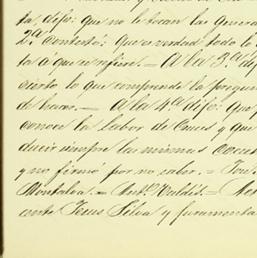 ta, dijo: que no le tocan las General
2ª contestó: Que es verdad todo l
ta a que se refiere. — A la 3ª dij
cierto lo que comprende la pregun
de hacer. — A la 4ª dijo: Que
conoce la labor de Cruces y que
ducir siempre las mismas
y no firmó por no saber. =
Montalva. = Ant.º Valdés. =
conte Jesus Silva y juramenta